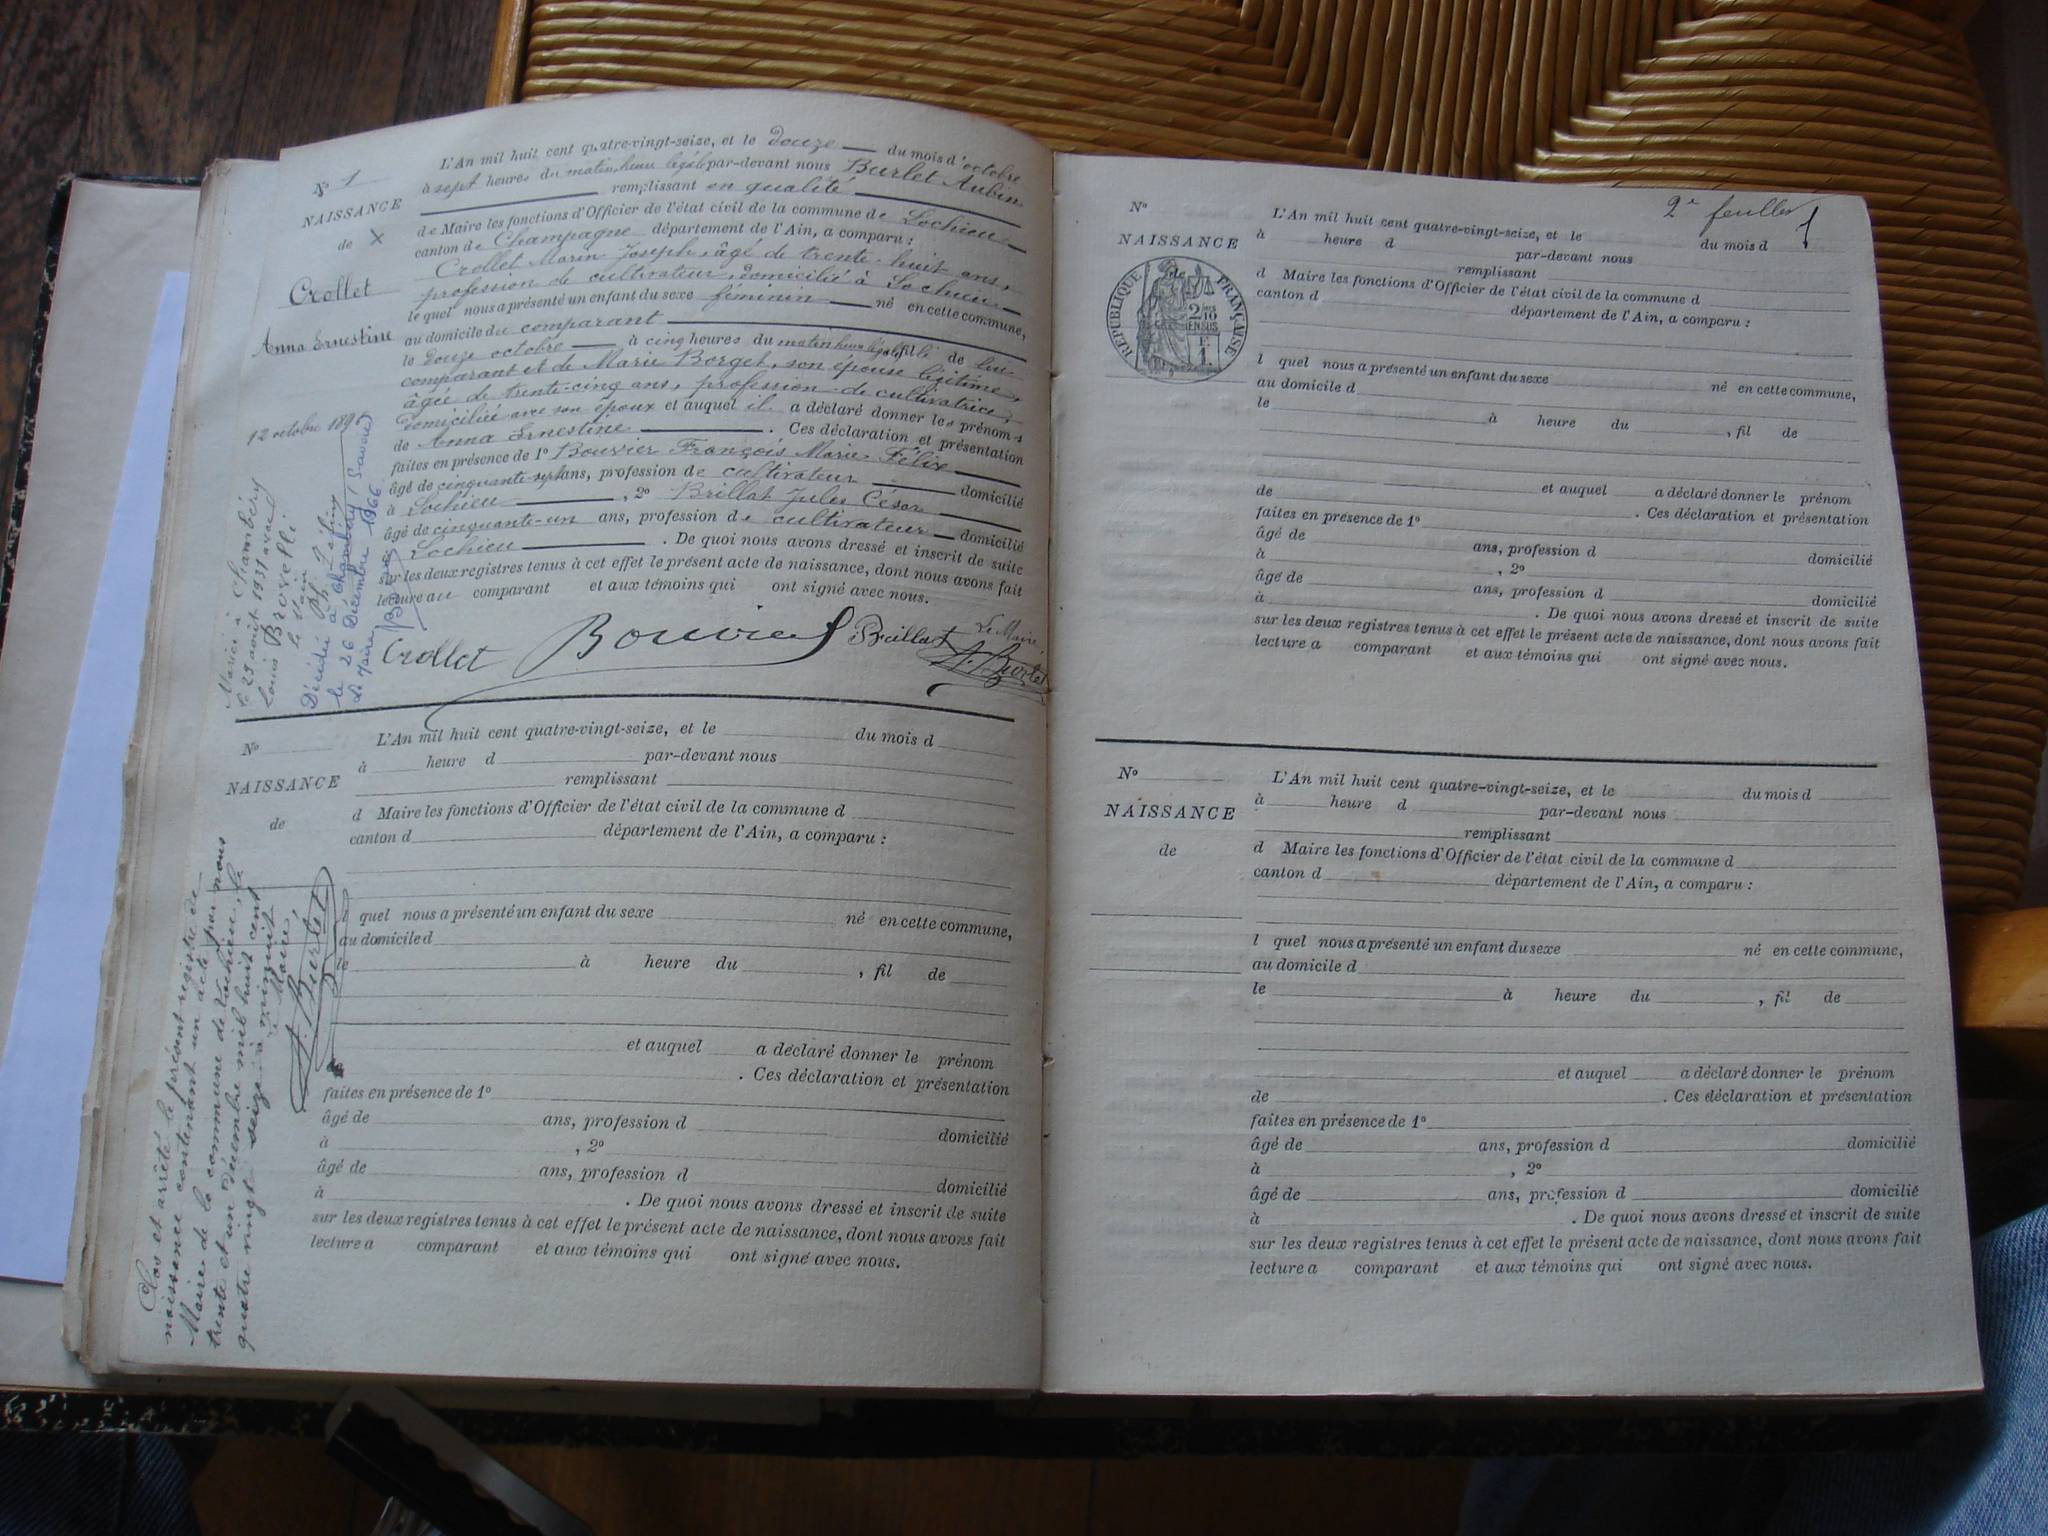 N° 1
NAISSANCE
de X
Crollet
Anna Ernestine
12 octobre 1896
L'An mil huit cent quatre-vingt-seize, et le douze du mois d'octobre
à sept heures du matin, heure légale par-devant nous Burlet Aubin
remplissant en qualité
de Maire les fonctions d'Officier de l'état civil de la commune de Lochieu
canton de Champagne département de l'Ain, a comparu :
Crollet Marin Joseph, âgé de trente-huit ans,
profession de cultivateur, domicilié à Lochieu
lequel nous a présenté un enfant du sexe féminin né en cette commune,
au domicile du comparant
le douze octobre à cinq heures du matin heure légale, fille de lui
comparant et de Marie Borget, son épouse légitime,
âgée de trente-cinq ans, profession de cultivatrice,
domiciliée avec son époux et auquel il a déclaré donner les prénoms
de Anna Ernestine . Ces déclaration et présentation
faites en présence de 1° Bouvier François Marie Félix
âgé de cinquante-sept ans, profession de cultivateur domicilié
à Lochieu , 2° Brillat Jules César
âgé de cinquante-un ans, profession de cultivateur domicilié
Lochieu . De quoi nous avons dressé et inscrit de suite
sur les deux registres tenus à cet effet le présent acte de naissance, dont nous avons fait
lecture au comparant et aux témoins qui ont signé avec nous.
Crollet Bouvier Brillat Le Maire,
A. Burlet
Mariée à Chambéry
le 29 août 1931 avec
Louis Brovelli
le Maire
Décédée à
Chambéry (Savoie)
le 26 Décembre 1966
Le Maire
N°
NAISSANCE
de
L'An mil huit cent quatre-vingt-seize, et le du mois d
à heure d par-devant nous
remplissant
d Maire les fonctions d'Officier de l'état civil de la commune d
canton d département de l'Ain, a comparu :
l quel nous a présenté un enfant du sexe né en cette commune,
au domicile d
le à heure du , fil de
et auquel a déclaré donner le prénom
de . Ces déclaration et présentation
faites en présence de 1°
âgé de ans, profession d domicilié
à , 2°
âgé de ans, profession d domicilié
à . De quoi nous avons dressé et inscrit de suite
sur les deux registres tenus à cet effet le présent acte de naissance, dont nous avons fait
lecture a comparant et aux témoins qui ont signé avec nous.
Clos et arrêté le présent registre de
naissance contenant un acte par nous
Maire de la commune de Lochieu, le
trente et un Décembre mil huit cent
quatre vingt seize à minuit
Le Maire,
A. Burlet
2e feuillet
N°
NAISSANCE
de
RÉPUBLIQUE FRANÇAISE
2/10 EN SUS
F.
1.
L'An mil huit cent quatre-vingt-seize, et le du mois d
à heure d par-devant nous
remplissant
d Maire les fonctions d'Officier de l'état civil de la commune d
canton d département de l'Ain, a comparu :
l quel nous a présenté un enfant du sexe né en cette commune,
au domicile d
le à heure du , fil de
et auquel a déclaré donner le prénom
de . Ces déclaration et présentation
faites en présence de 1°
âgé de ans, profession d domicilié
à , 2°
âgé de ans, profession d domicilié
à . De quoi nous avons dressé et inscrit de suite
sur les deux registres tenus à cet effet le présent acte de naissance, dont nous avons fait
lecture a comparant et aux témoins qui ont signé avec nous.
N°
NAISSANCE
de
L'An mil huit cent quatre-vingt-seize, et le du mois d
à heure d par-devant nous
remplissant
d Maire les fonctions d'Officier de l'état civil de la commune d
canton d département de l'Ain, a comparu :
l quel nous a présenté un enfant du sexe né en cette commune,
au domicile d
le à heure du , fil de
et auquel a déclaré donner le prénom
de . Ces déclaration et présentation
faites en présence de 1°
âgé de ans, profession d domicilié
à , 2°
âgé de ans, profession d domicilié
à . De quoi nous avons dressé et inscrit de suite
sur les deux registres tenus à cet effet le présent acte de naissance, dont nous avons fait
lecture a comparant et aux témoins qui ont signé avec nous.